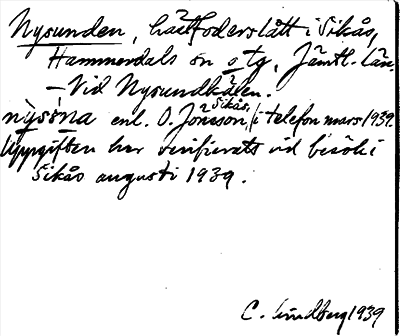 Nysunden, hästfoderslått i Sikås,
Hammerdals sn o tg, Jämtl. län.
– Vid Nysundkälen.
nysùna enl. O. Jonsson, Sikås, i telefon mars 1939.
Uppgiften har verifierats vid besök i
Sikås augusti 1939.
C. Lindberg 1939